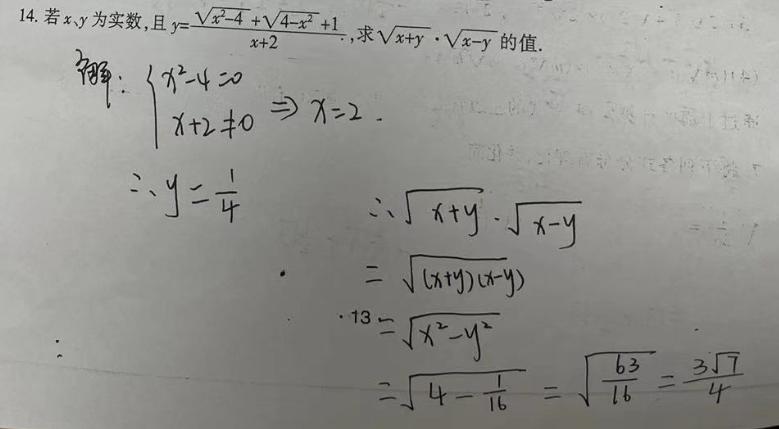 14. 若x、y为实数,且 y=(√(x²-4)+√(4-x²)+1)/(x+2),求√(x+y)·√(x-y)的值.
解: { x²-4=0
x+2≠0 ⇒ x=2.
∴ y=1/4
∴ √(x+y)·√(x-y)
=√((x+y)(x-y))
·13
=√(x²-y²)
=√(4-1/16) =√(63/16) =3√7/4